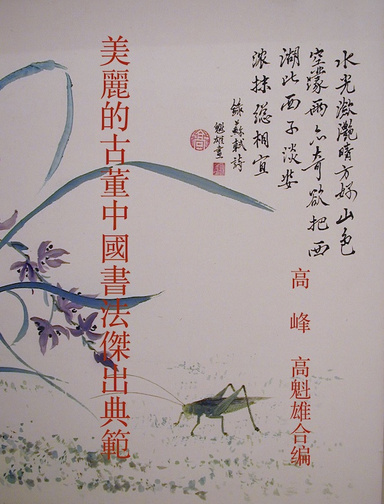 水光瀲灩晴方好山色
空濛雨亦奇欲把西
湖比西子淡妝
濃抹總相宜
錄蘇軾詩
魁雄畫
高峰 高魁雄合编
美麗的古董中國書法傑出典範